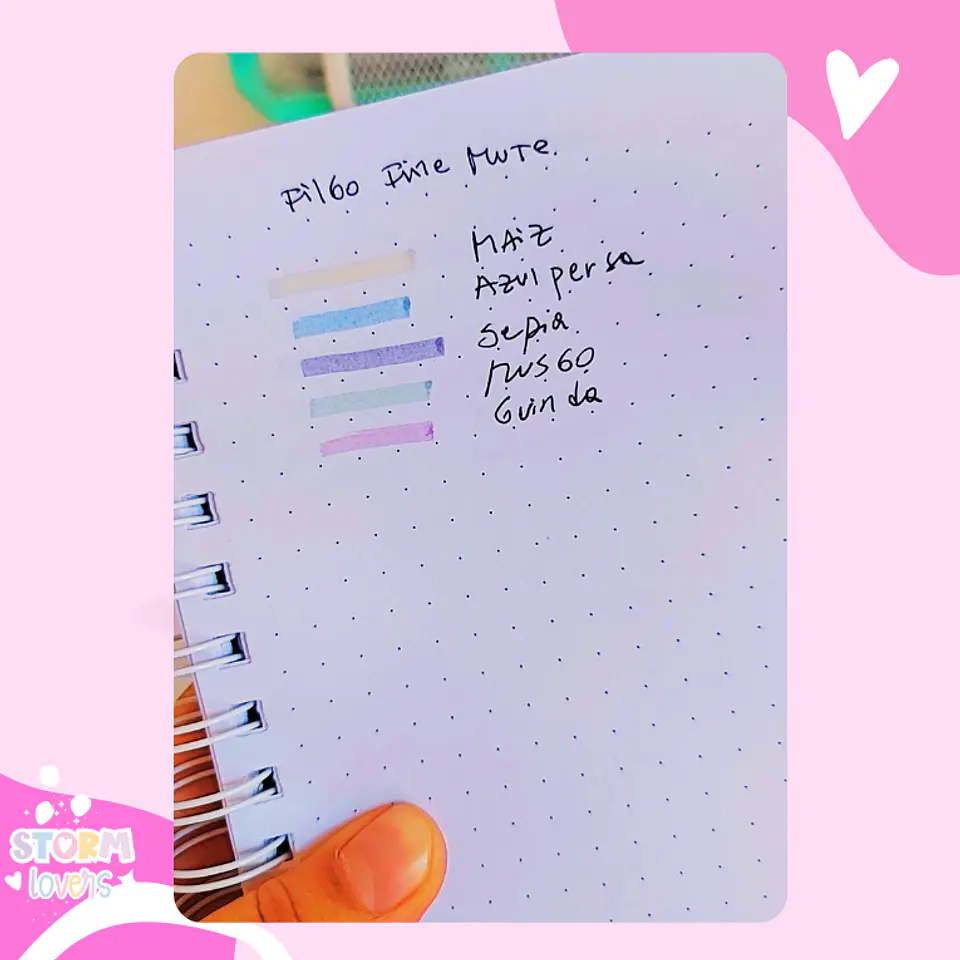 Filgo Fine Mute.
MAiZ
Azul persa
sepia
MUSGO
Guinda
STORM
lovers